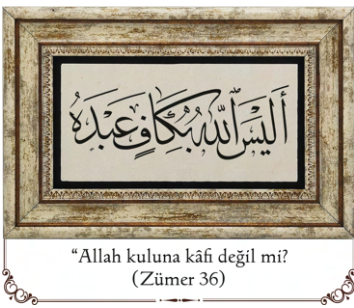 أَلَيْسَ اللّٰهُ بِكَافٍ عَبْدَهُ
“Allah kuluna kâfi değil mi?
(Zümer 36)